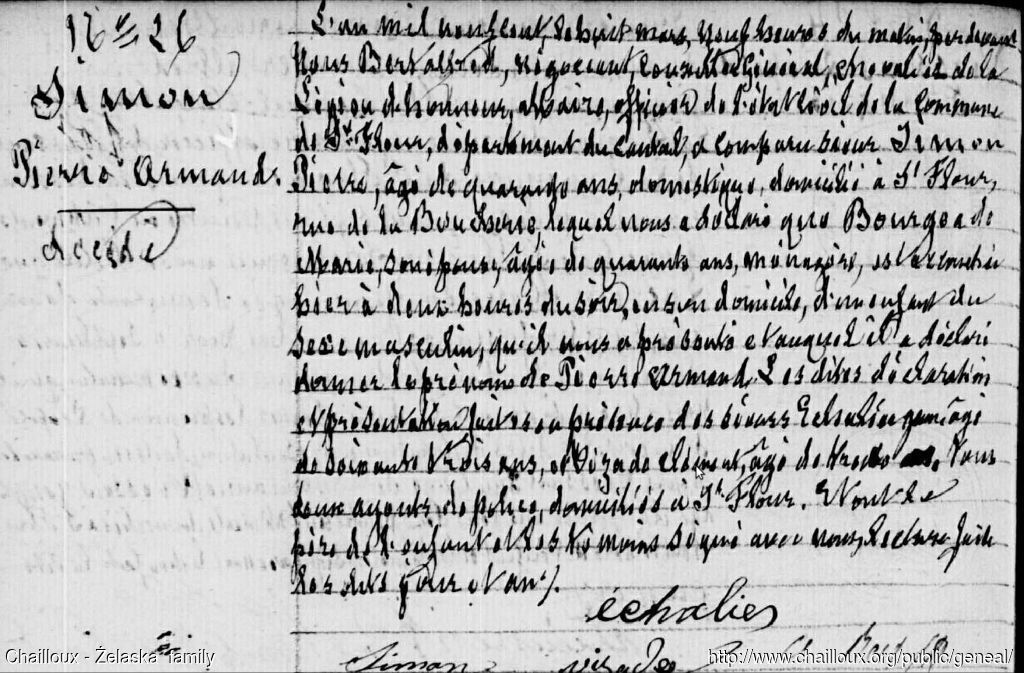 N° 26
Simon
Pierre Armand.
décédé
L'an mil neuf cent, le huit mars, neuf heures du matin, par devant
Nous Bert Alfred, négociant, Conseiller Général, chevalier de la
Légion d'honneur, Maire, officier de l'état civil de la Commune
de St Flour, département du Cantal, a comparu sieur Simon
Pierre, âgé de quarante ans, domestique, domicilié à St Flour,
rue de la Boucherie, lequel nous a déclaré que Bourgeade
Marie, son épouse, âgée de quarante ans, ménagère, est accouchée
hier à deux heures du soir, en son domicile, d'un enfant du
sexe masculin, qu'il nous a présenté et auquel il a déclaré
donner le prénoms de Pierre Armand. Les dites déclaration
et présentation faites en présence des sieurs Echalié âgé
de soixante trois ans, et Vizade Clément, âgé de trente ans, tous
deux agents de police, domiciliés à St Flour. Et ont le
père de l'enfant et les témoins signé avec nous, lecture faite
les dits jour et an./.
échalier
Simon
Chailloux - Želaska family
http://www.chailloux.org/public/geneal/